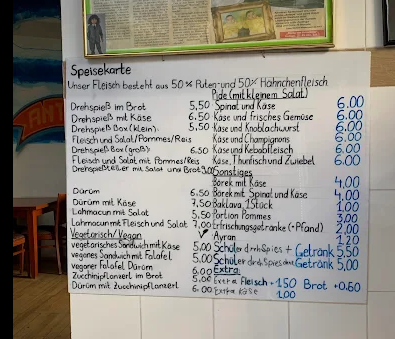 Speisekarte
Unser Fleisch besteht aus 50% Puten- und 50% Hähnchenfleisch
Drehspieß im Brot 5,50
Drehspieß mit Käse 6.50
Drehspieß Box (klein) 5,50
Fleisch und Salat/Pommes/Reis
Drehspieß Box (groß) 6.50
Fleisch und Salat mit Pommes/Reis
Drehspießteller mit Salat und Brot
Dürüm 6.50
Dürüm mit Käse 7,50
Lahmacun mit Salat 5.50
Lahmacun mit Fleisch und Salat 7,00
Vegetarisch/Vegan
vegetarisches Sandwich mit Käse 5,00
veganes Sandwich mit Falafel 5.00
veganer Falafel Dürüm 6.00
Zucchinipflanzerl im Brot 5.00
Dürüm mit Zucchinipflanzerl 6.00
Pide (mit kleinem Salat)
Spinat und Käse 6.00
Käse und frisches Gemüse 6.00
Käse und Knoblauchwurst 6.00
Käse und Champignons 6.00
Käse und Kebabfleisch 6.00
Käse, Thunfisch und Zwiebel 6.00
Sonstiges
Börek mit Käse 4,00
Börek mit Spinat und Käse 4,00
Baklava 1 Stück 1,00
Portion Pommes 3,00
Erfrischungsgetränke (+Pfand) 2,00
Ayran 1,20
Schüler drehspies + Getränk 5,50
Schüler drehspies ohne Getränk 5,00
Extra:
Extra Fleisch + 1.50 Brot +0.60
Extra Käse 1.00